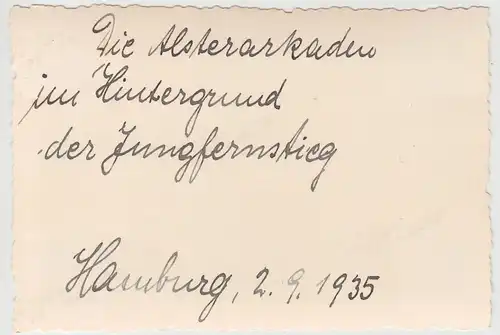 Die Alsterarkaden
im Hintergrund
der Jungfernstieg
Hamburg, 2. 9. 1935